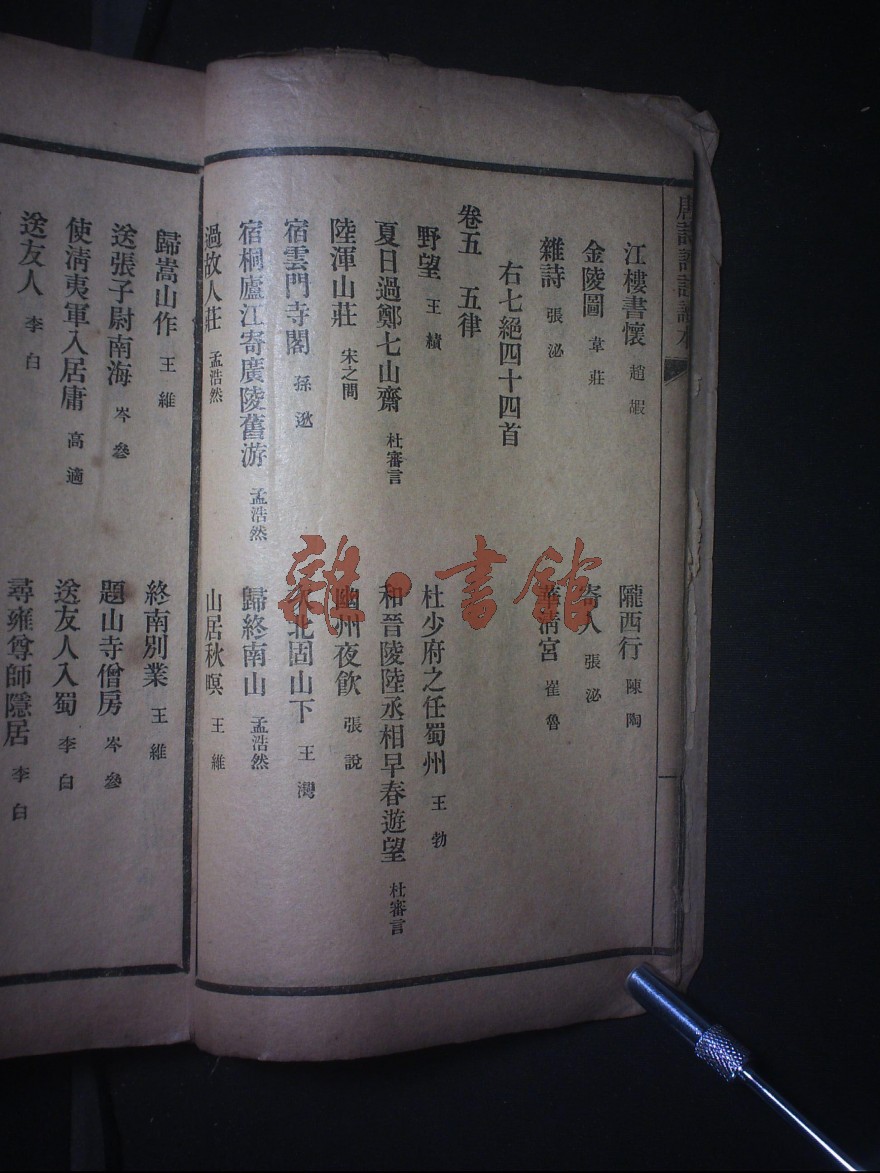 江樓書懷 趙嘏 隴西行 陳陶
金陵圖 韋莊 寄人 張泌
雜詩 張泌 華清宮 崔魯
右七絕四十四首
卷五 五律
野望 王績 杜少府之任蜀州 王勃
夏日過鄭七山齋 杜審言 和晉陵陸丞相早春遊望 杜審言
陸渾山莊 宋之問 幽州夜飲 張說
宿雲門寺閣 孫逖 北固山下 王灣
宿桐廬江寄廣陵舊游 孟浩然 歸終南山 孟浩然
過故人莊 孟浩然 山居秋暝 王維
歸嵩山作 王維 終南別業 王維
送張子尉南海 岑參 題山寺僧房 岑參
使清夷軍入居庸 高適 送友人入蜀 李白
送友人 李白 尋雍尊師隱居 李白
雜·書館